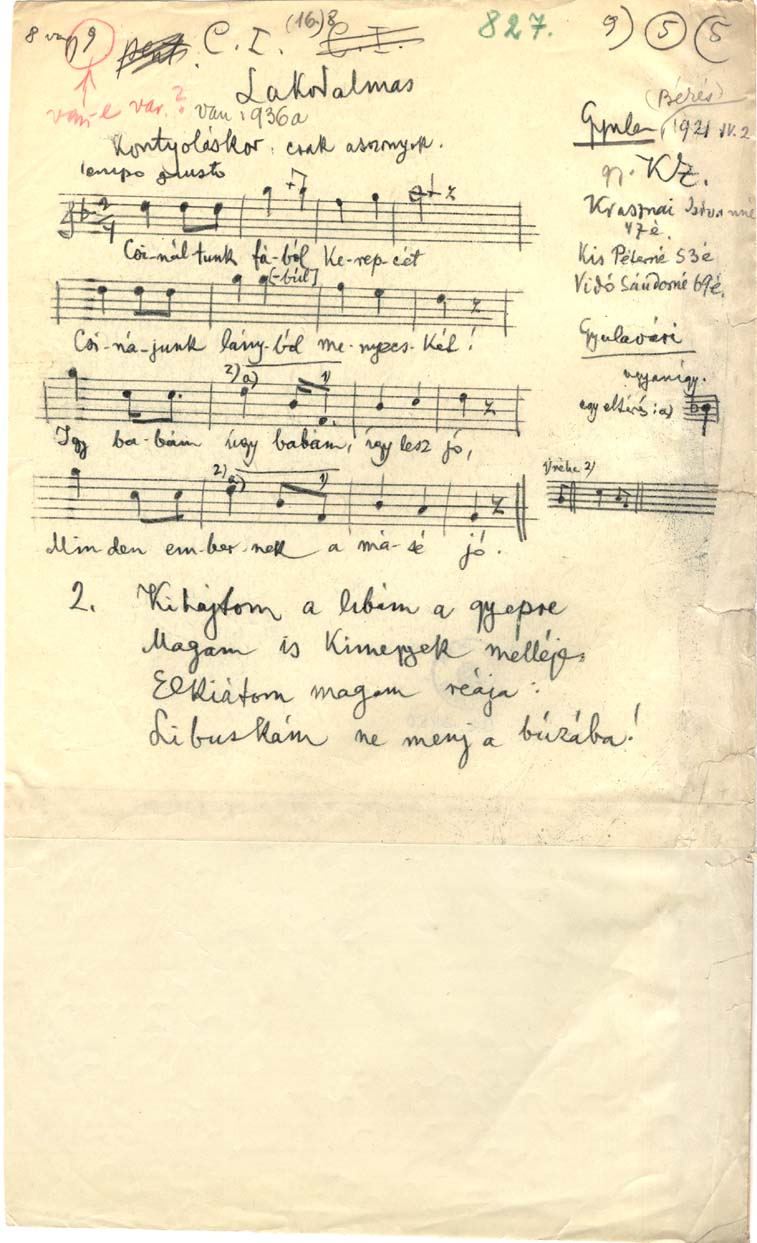 8 9
C. I. (16.) 8 C. I.
827.
9) 5 5
van-e var.? van 1936a
Lakodalmas
(Bérés)
Gyula, 1921 IV. 2
Kontyoláskor, csak asszonyok.
Tempo giusto
gy. KZ.
Krasznai Istvánné
47é.
Kis Péterné 53é
Vidó Sándorné 69é.
Csi-nál-tunk fá-ból ke-rep-cét
[-bul]
Csi-ná-junk lány-ból me-nyecs-két!
Gyulavári
ugyanígy.
egy eltérés: a)
2) a) 1)
Igy ba-bám úgy babám, így lesz jó,
2) a) 1)
Néha 2)
Min-den em-ber-nek a má-sé jó.
2. Kihajtom a libám a gyepre
Magam is kimegyek mélléje,
Elkiátom magam réája:
Libuskám ne menj a búzába!